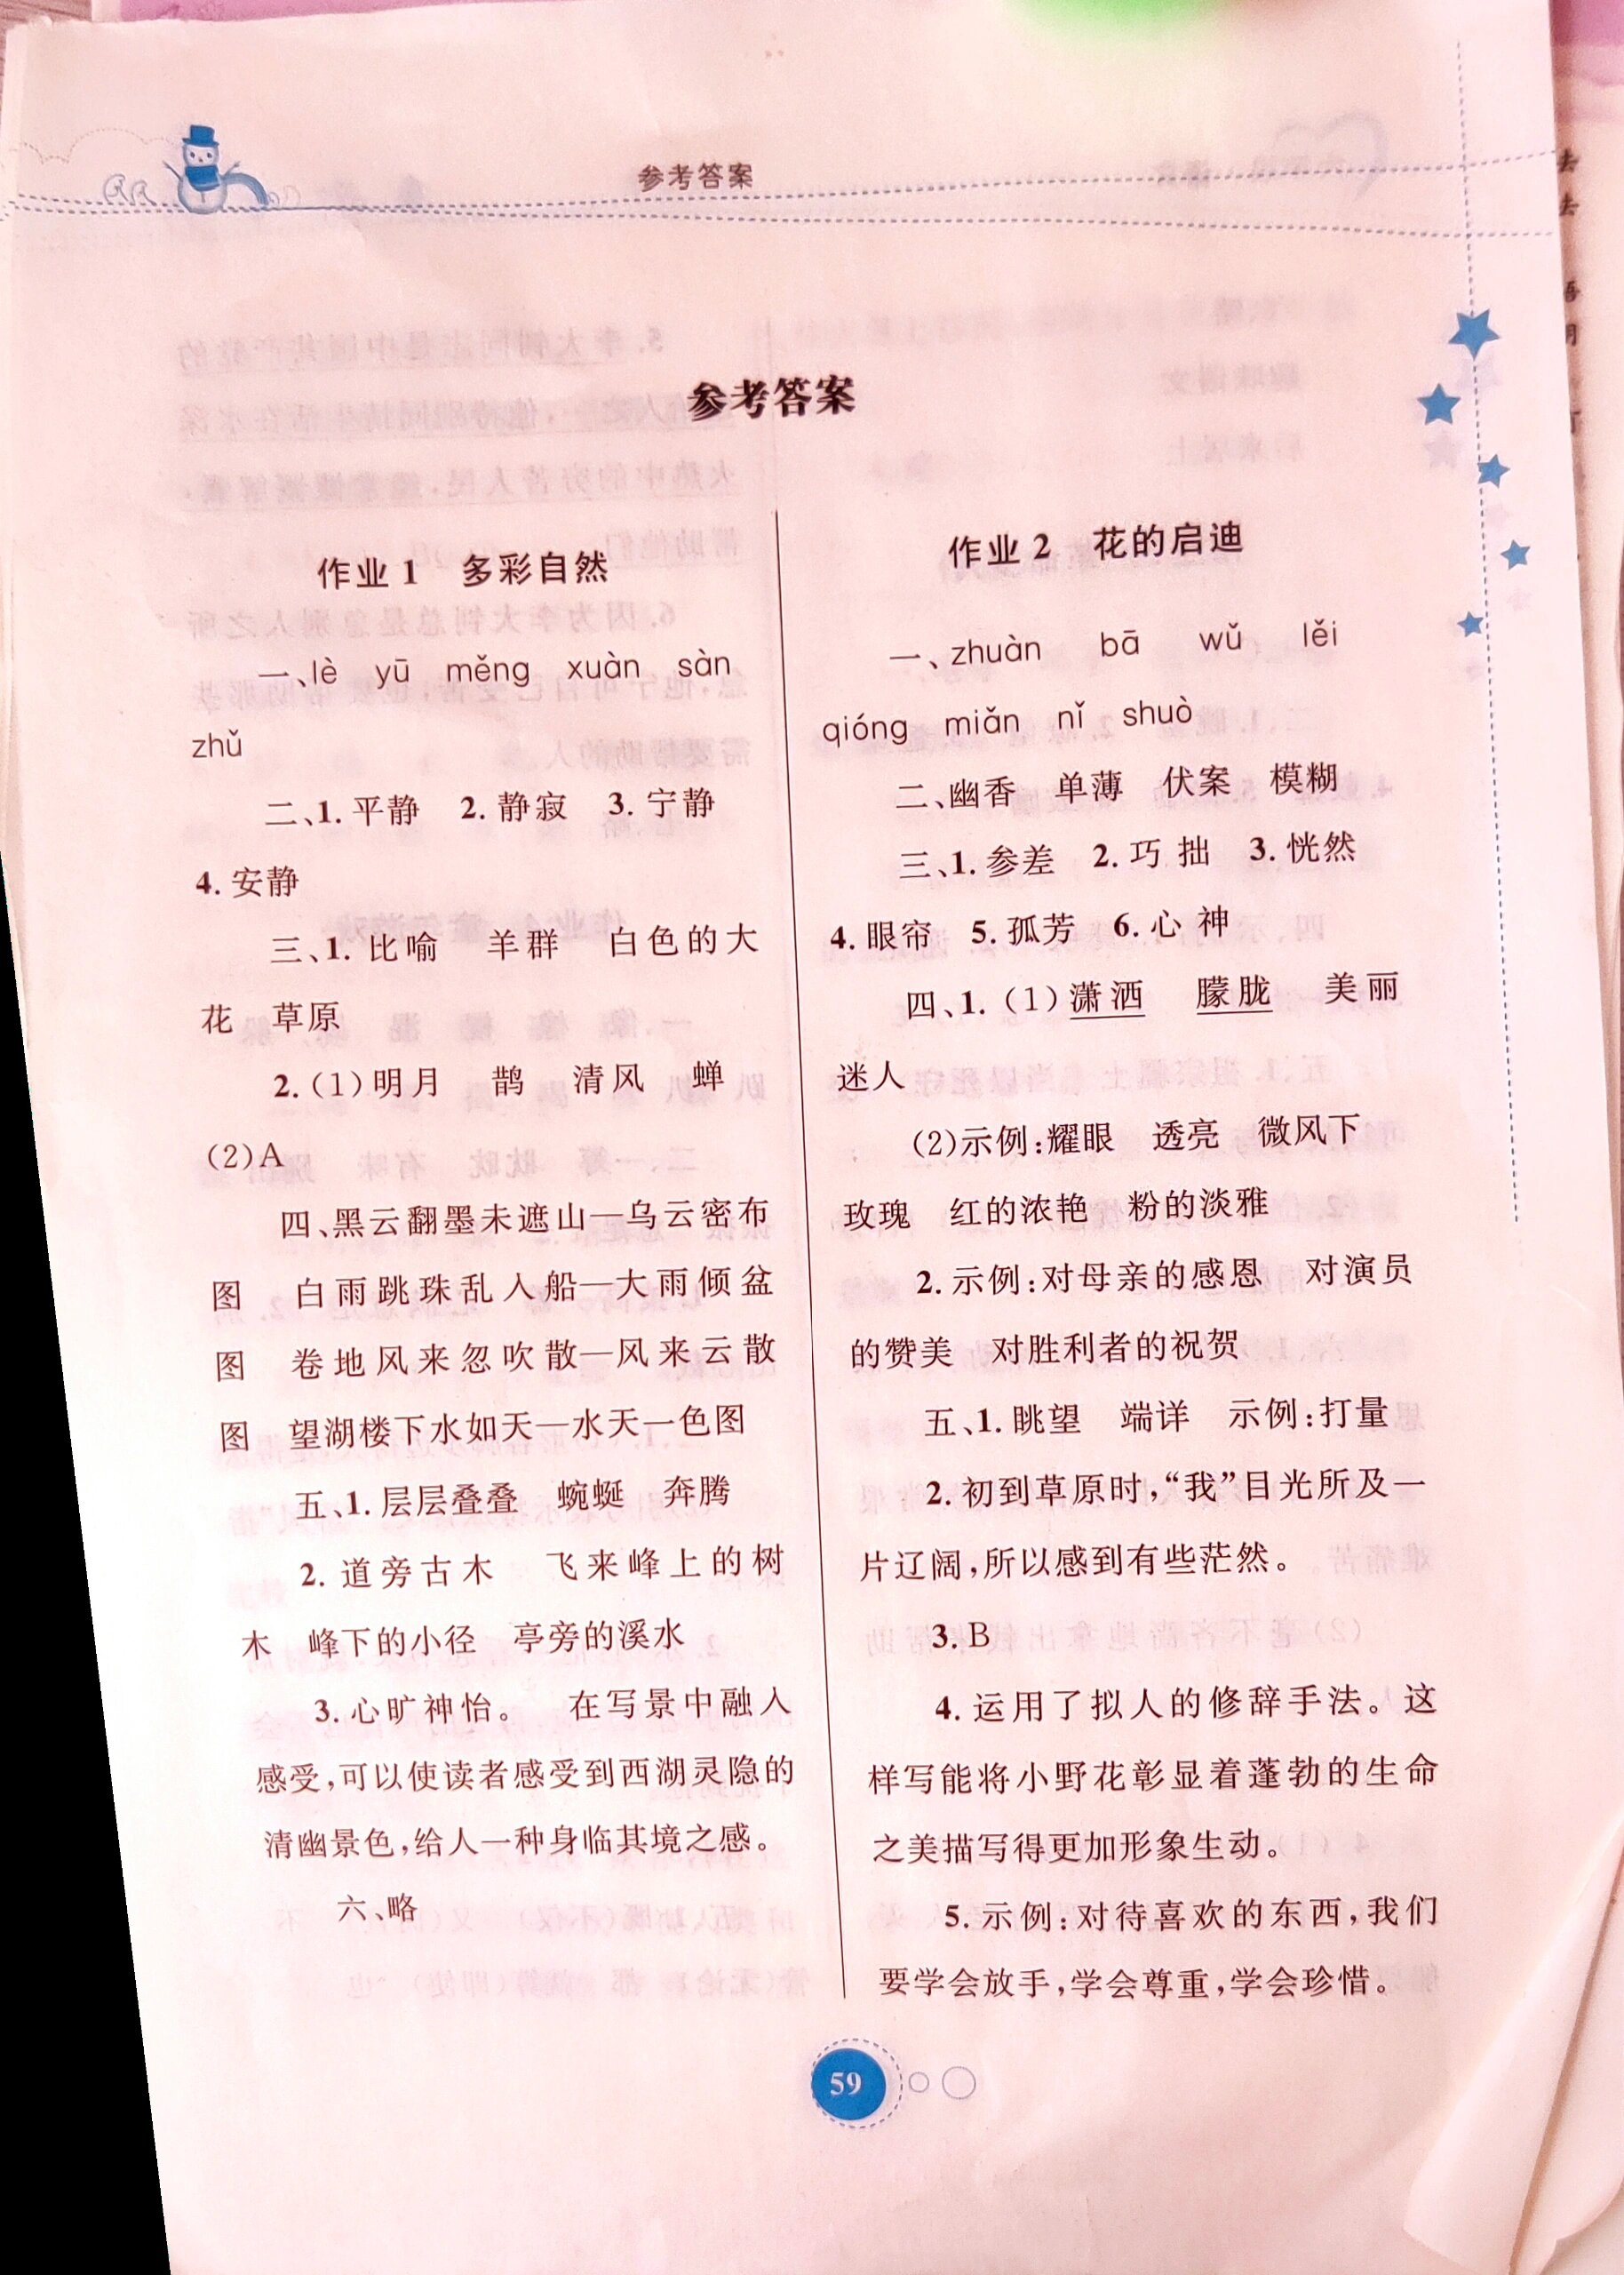 参考答案
参考答案
作业1 多彩自然
一、lè yū měng xuàn sàn
zhǔ
二、1.平静 2.静寂 3.宁静
4.安静
三、1.比喻 羊群 白色的大
花 草原
2.(1)明月 鹊 清风 蝉
(2)A
四、黑云翻墨未遮山—乌云密布
图 白雨跳珠乱入船—大雨倾盆
图 卷地风来忽吹散—风来云散
图 望湖楼下水如天—水天一色图
五、1.层层叠叠 蜿蜒 奔腾
2.道旁古木 飞来峰上的树
木 峰下的小径 亭旁的溪水
3.心旷神怡。 在写景中融入
感受,可以使读者感受到西湖灵隐的
清幽景色,给人一种身临其境之感。
六、略
作业2 花的启迪
一、zhuàn bā wǔ lěi
qióng miǎn nǐ shuò
二、幽香 单薄 伏案 模糊
三、1.参差 2.巧 拙 3.恍然
4.眼帘 5.孤芳 6.心 神
四、1.(1)潇洒 朦胧 美丽
迷人
(2)示例:耀眼 透亮 微风下
玫瑰 红的浓艳 粉的淡雅
2.示例:对母亲的感恩 对演员
的赞美 对胜利者的祝贺
五、1.眺望 端详 示例:打量
2.初到草原时,“我”目光所及一
片辽阔,所以感到有些茫然。
3.B
4.运用了拟人的修辞手法。这
样写能将小野花彰显着蓬勃的生命
之美描写得更加形象生动。
5.示例:对待喜欢的东西,我们
要学会放手,学会尊重,学会珍惜。
59